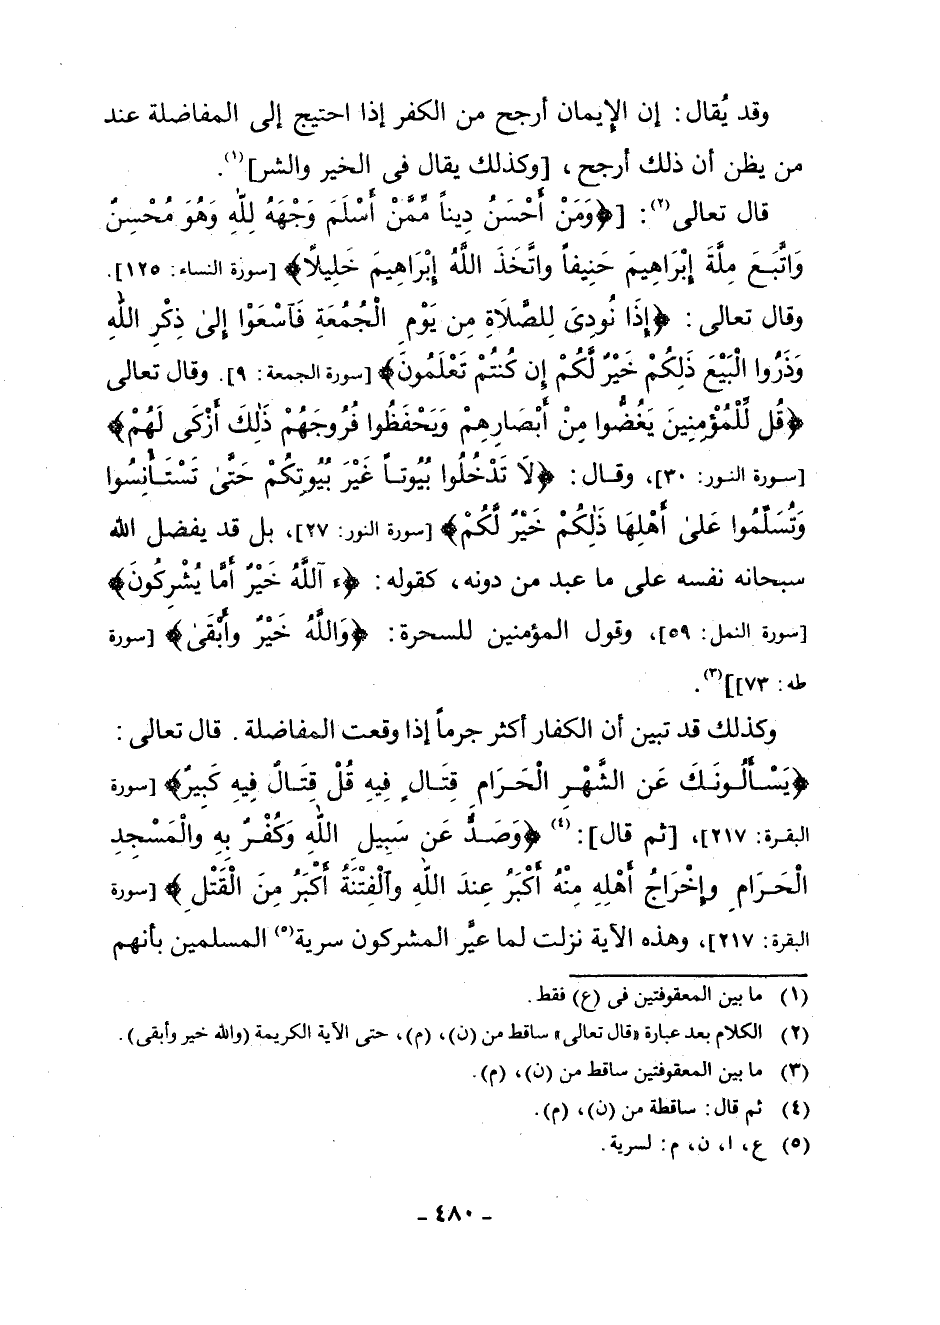 وقد يُقال: إن الإيمان أرجح من الكفر إذا احتيج إلى المفاضلة عند
من يظن أن ذلك أرجح، [وكذلك يقال فى الخير والشر]⁽¹⁾.
قال تعالى⁽²⁾: [﴿وَمَنْ أَحْسَنُ دِيناً مِّمَّنْ أَسْلَمَ وَجْهَهُ لِلَّهِ وَهُوَ مُحْسِنٌ
وَاتَّبَعَ مِلَّةَ إِبْرَاهِيمَ حَنِيفاً واتَّخَذَ اللَّهُ إِبْرَاهِيمَ خَلِيلاً﴾ [سورة النساء: ١٢٥].
وقال تعالى: ﴿إِذَا نُودِىَ لِلصَّلاَةِ مِن يَوْمِ الْجُمُعَةِ فَاَسْعَوْا إِلىٰ ذِكْرِ اللَّهِ
وَذَرُوا الْبَيْعَ ذَلِكُمْ خَيْرٌ لَّكُمْ إِن كُنتُمْ تَعْلَمُونَ﴾ [سورة الجمعة: ٩]. وقال تعالى
﴿قُل لِّلْمُؤْمِنِينَ يَغُضُّوا مِنْ أَبْصَارِهِمْ وَيَحْفَظُوا فُرُوجَهُمْ ذَٰلِكَ أَزْكَى لَهُمْ﴾
[سورة النور: ٣٠]، وقال: ﴿لَا تَدْخُلُوا بُيُوتاً غَيْرَ بُيُوتِكُمْ حَتَّى تَسْتَأْنِسُوا
وَتُسَلِّمُوا عَلىٰ أَهْلِهَا ذَٰلِكُمْ خَيْرٌ لَّكُمْ﴾ [سورة النور: ٢٧]، بل قد يفضل الله
سبحانه نفسه على ما عبد من دونه، كقوله: ﴿ءَ آللَّهُ خَيْرٌ أَمَّا يُشْرِكُونَ﴾
[سورة النمل: ٥٩]، وقول المؤمنين للسحرة: ﴿وَاللَّهُ خَيْرٌ وأَبْقَىٰ﴾ [سورة
طه: ٧٣]]⁽³⁾.
وكذلك قد تبين أن الكفار أكثر جرماً إذا وقعت المفاضلة. قال تعالى:
﴿يَسْأَلُونَكَ عَنِ الشَّهْرِ الْحَرَامِ قِتَالٍ فِيهِ قُلْ قِتَالٌ فِيهِ كَبِيرٌ﴾ [سورة
البقرة: ٢١٧]، [ثم قال]:⁽⁴⁾ ﴿وَصَدٌّ عَن سَبِيلِ اللَّهِ وَكُفْرٌ بِهِ والْمَسْجِدِ
الْحَرَامِ وإِخْرَاجُ أَهْلِهِ مِنْهُ أَكْبَرُ عِندَ اللَّهِ واَلْفِتْنَةُ أَكْبَرُ مِنَ الْقَتْلِ﴾ [سورة
البقرة: ٢١٧]، وهذه الآية نزلت لما عيَّر المشركون سرية⁽⁵⁾ المسلمين بأنهم
(١) ما بين المعقوفتين فى (ع) فقط.
(٢) الكلام بعد عبارة «قال تعالى» ساقط من (ن)، (م)، حتى الآية الكريمة (والله خير وأبقى).
(٣) ما بين المعقوفتين ساقط من (ن)، (م).
(٤) ثم قال: ساقطة من (ن)، (م).
(٥) ع، ا، ن، م: لسرية.
- ٤٨٠ -